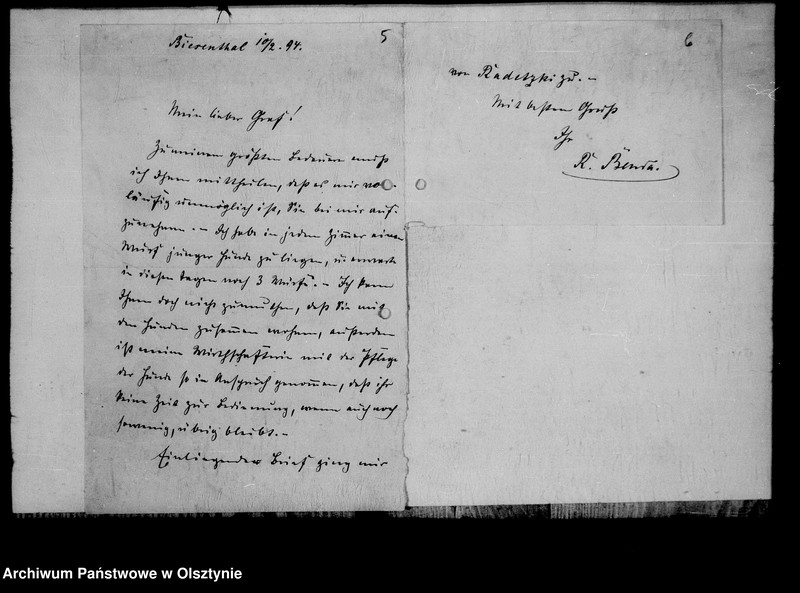 Bierenthal 10/2. 94.
5
Mein lieber Graf!
Zu meinem größten Bedauern muß
ich Ihnen mittheilen, daß es mir vor-
läufig unmöglich ist, Sie bei mir auf-
zunehmen. - Ich habe in jedem Zimmer einen
Wurf junger Hunde zu liegen, u. erwarte
in diesen Tagen noch 3 Würfe. - Ich kann
Ihnen doch nicht zumuthen, daß Sie mit
den Hunden zusammen wohnen, außerdem
ist meine Wirthschafterin mit der Pflege
der Hunde so in Anspruch genommen, daß ihr
keine Zeit zur Bedienung, wenn auch noch
so wenig, übrig bleibt. -
Einliegender Brief ging mir
6
von Radetzki zu. -
Mit bestem Gruß
Ihr
R. Benda.
Archiwum Państwowe w Olsztynie